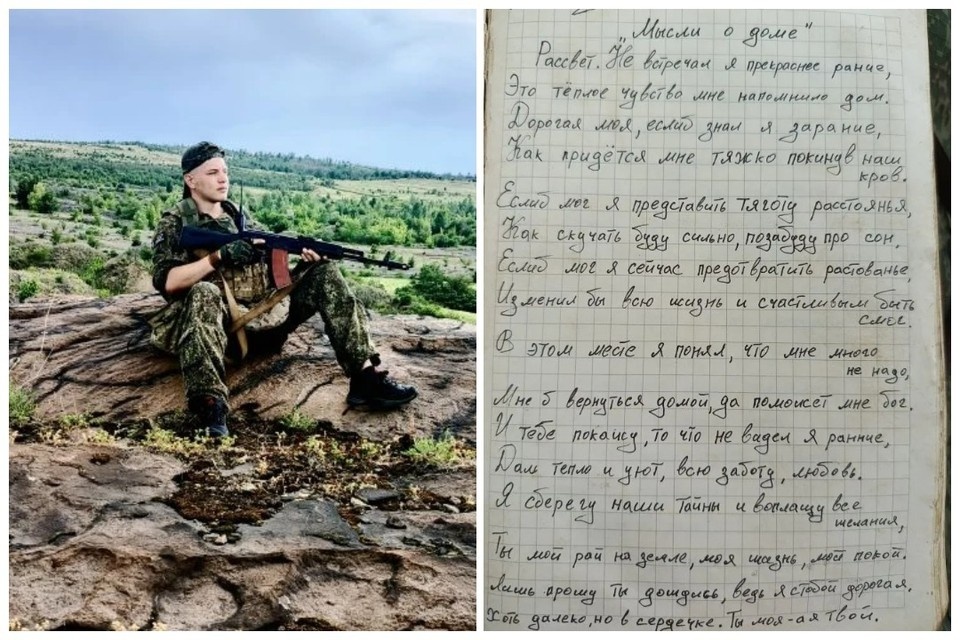 „Мысли о доме"
Рассвет. Не встречал я прекраснее рание,
Это тёплое чувство мне напомнило дом.
Дорогая моя, еслиб знал я зарание,
Как придётся мне тяжко покинув наш
кров.
Еслиб мог я представить тяготу расстоянья,
Как скучать буду сильно, позабуду про сон.
Еслиб мог я сейчас предотвратить растованье,
Изменил бы всю жизнь и счастливым быть
смог.
В этом месте я понял, что мне много
не надо,
Мне б вернуться домой, да поможет мне бог.
И тебе покажу, то что не видел я ранние,
Дам тепло и уют, всю заботу, любовь.
Я сберегу наши тайны и воплащу все
желания,
Ты мой рай на земле, моя жизнь, мой покой.
Лишь прошу ты дождись, ведь я стобой дорогая.
Хоть далеко, но в сердечке. Ты моя-а я твой.